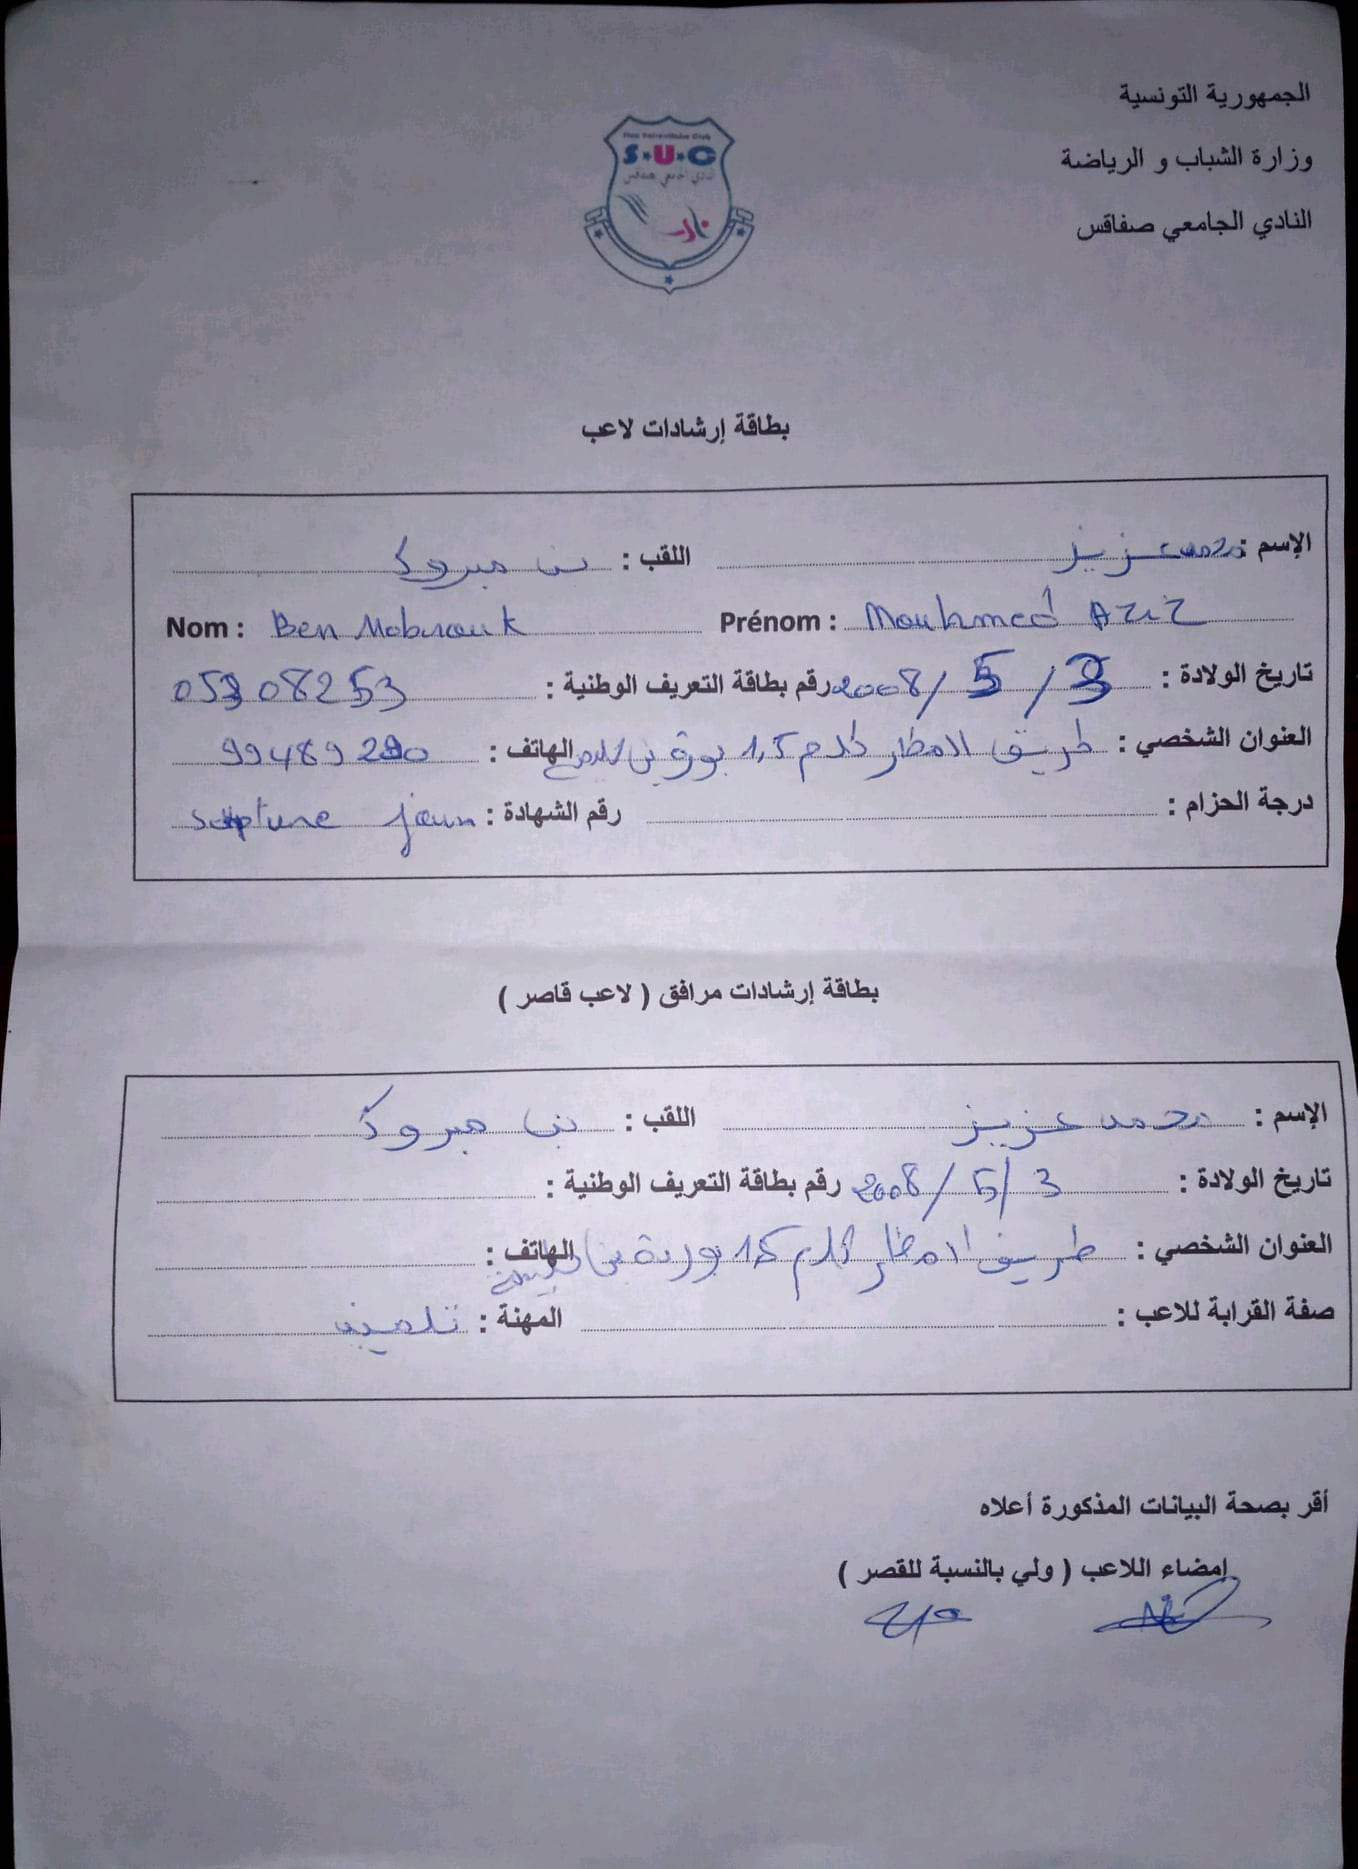 الجمهورية التونسية
وزارة الشباب و الرياضة
النادي الجامعي صفاقس
Sfax Universitaire Club
S★U★C
النادي الجامعي صفاقس
بطاقة إرشادات لاعب
الإسم : محمد عزيز اللقب : بن مبروك
Nom : Ben Mabrouk Prénom : Mouhamed Aziz
تاريخ الولادة : 3 / 5 / 2008 رقم بطاقة التعريف الوطنية : 05308253
العنوان الشخصي : طريق المطار كلم 1,5 الهاتف : 99489290
درجة الحزام : رقم الشهادة : jeun
بطاقة إرشادات مرافق ( لاعب قاصر )
الإسم : محمد عزيز اللقب : بن مبروك
تاريخ الولادة : 3 / 5 / 2008 رقم بطاقة التعريف الوطنية :
العنوان الشخصي : طريق المطار كلم 1,5 الهاتف :
صفة القرابة للاعب : المهنة : تلميذ
أقر بصحة البيانات المذكورة أعلاه
إمضاء اللاعب ( ولي بالنسبة للقصر )